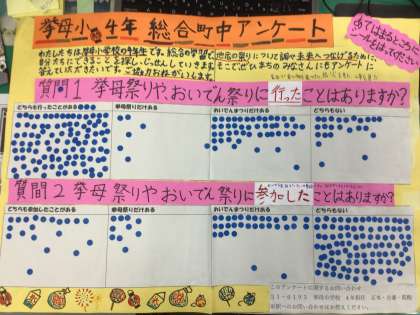 挙母小 4年 総合町中アンケート
あてはまるところに
シールをはってください
わたしたちは挙母小学校の4年生です。総合の学習で地元の祭りについて調べ未来へつなげるために、
自分たちにできることを探し、じっせんしていきます。そこでぜひまちのみなさんにもアンケートに
答えていただきたいです。ご協力お願いします
質問1 挙母祭りや、おいでん祭りに行ったことはありますか?
どちらも行ったことがある
挙母祭りだけある
おいでんまつりだけある
どちらもない
質問2 挙母祭りやおいでん祭りに参加したことはありますか?
どちらも参加したことがある
挙母祭りだけある
おいでんまつりだけある
どちらもない
このアンケートに関するお問い合わせ